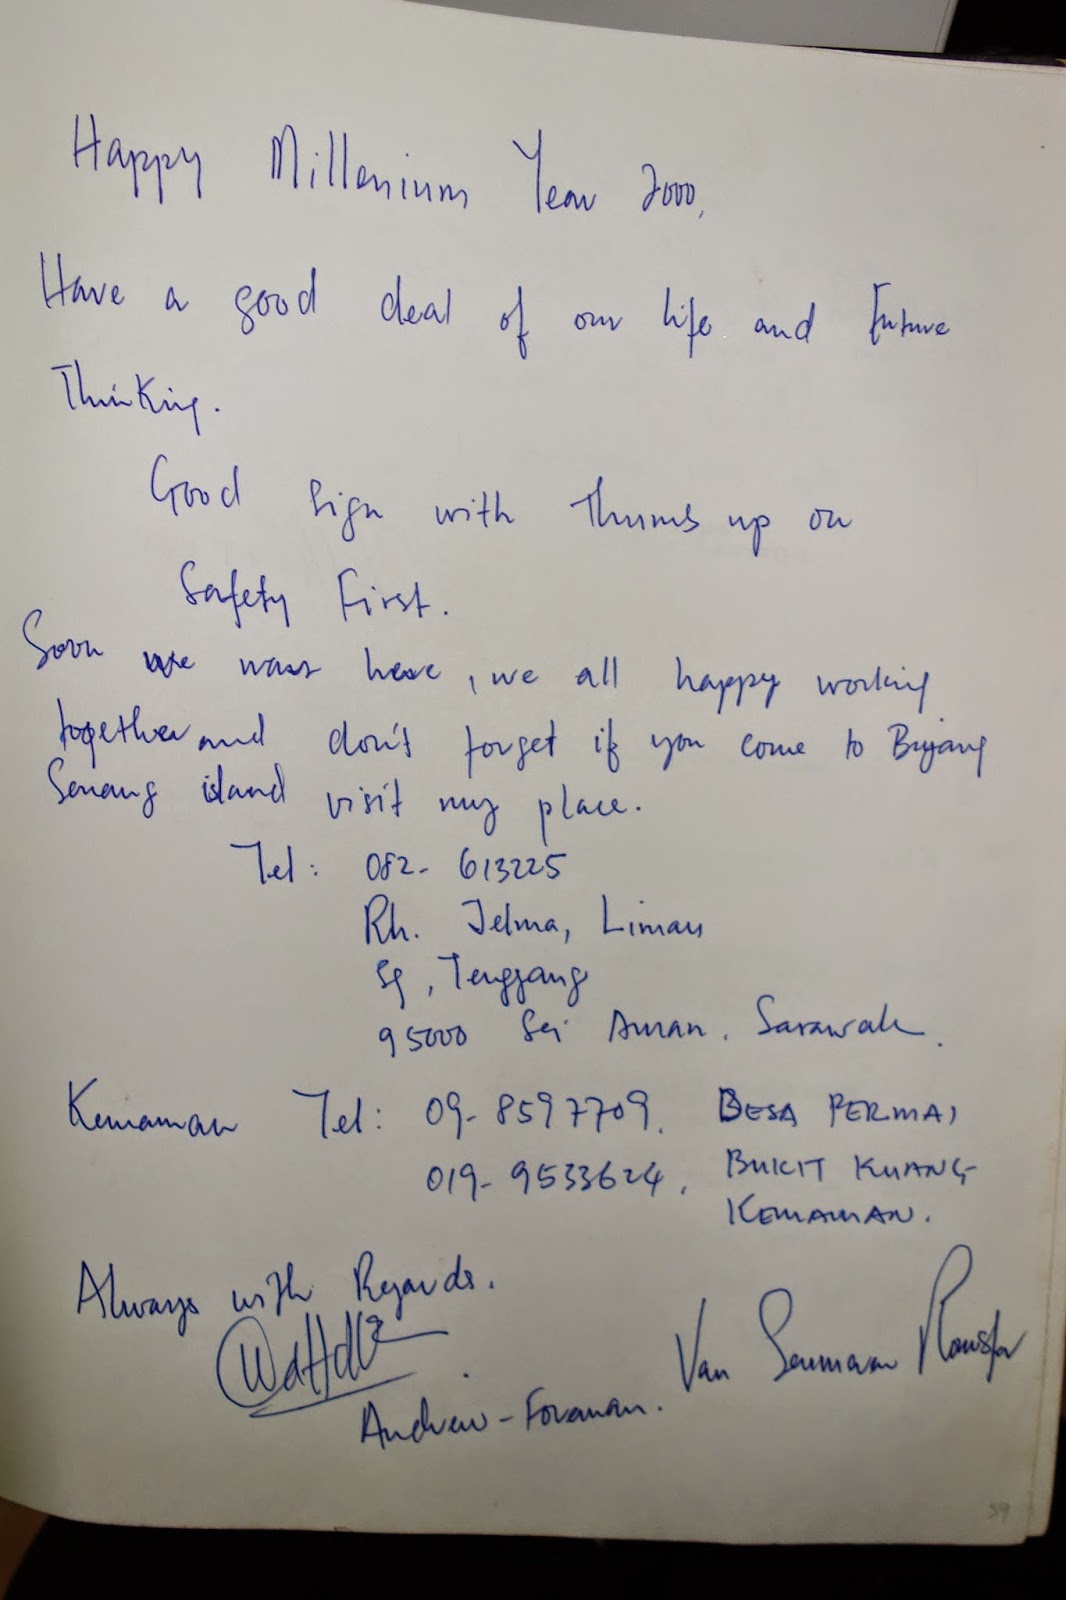 Happy Millenium Year 2000,
Have a good deal of our life and Future
Thinking.
Good sign with Thums up on
Safety First.
Soon we was here, we all happy working
together and don't forget if you come to Bujang
Senang island visit my place.
Tel: 082- 613225
Rh. Jelma, Limau
Sg, Tenggang
95000 Sri Aman. Sarawak.
Kemaman Tel: 09-8597709. BESA PERMAI
019-9533624, BUKIT KUANG
KEMAMAN.
Always with Regards.
Van
Andrew - Foraman.
59